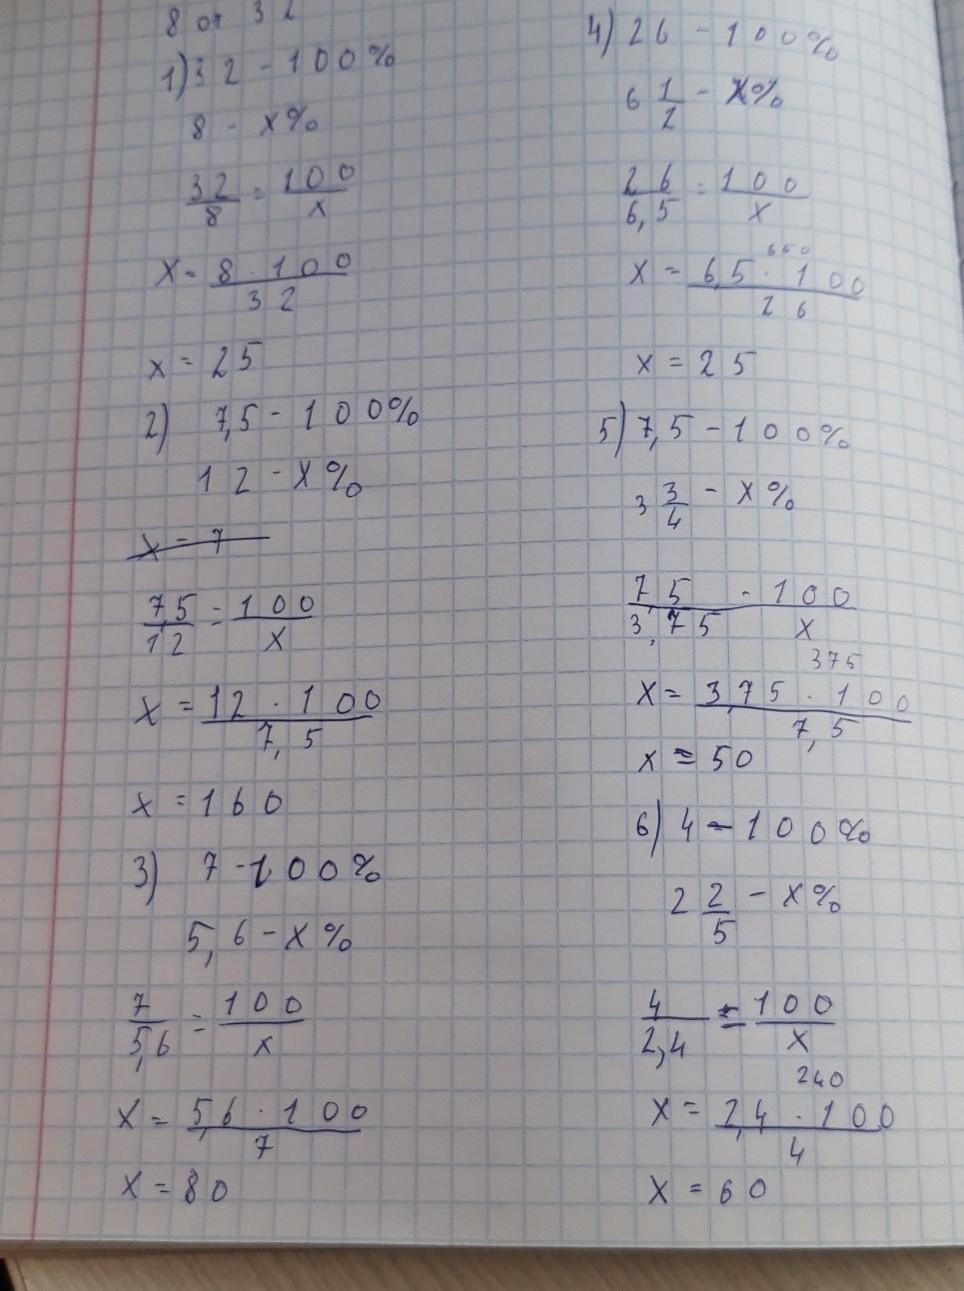 8 от 32
1) 32 - 100%
8 - x%
32/8 = 100/x
x = 8 · 100/32
x = 25
2) 7,5 - 100%
12 - x%
x = 7
7,5/12 = 100/x
x = 12 · 100/7,5
x = 160
3) 7 - 100%
5,6 - x%
7/5,6 = 100/x
x = 5,6 · 100/7
x = 80
4) 26 - 100%
6 1/2 - x%
26/6,5 = 100/x
650
x = 6,5 · 100/26
x = 25
5) 7,5 - 100%
3 3/4 - x%
7,5/3,75 - 100/x
375
x = 3,75 · 100/7,5
x = 50
6) 4 - 100%
2 2/5 - x%
4/2,4 = 100/x
240
x = 2,4 · 100/4
x = 60